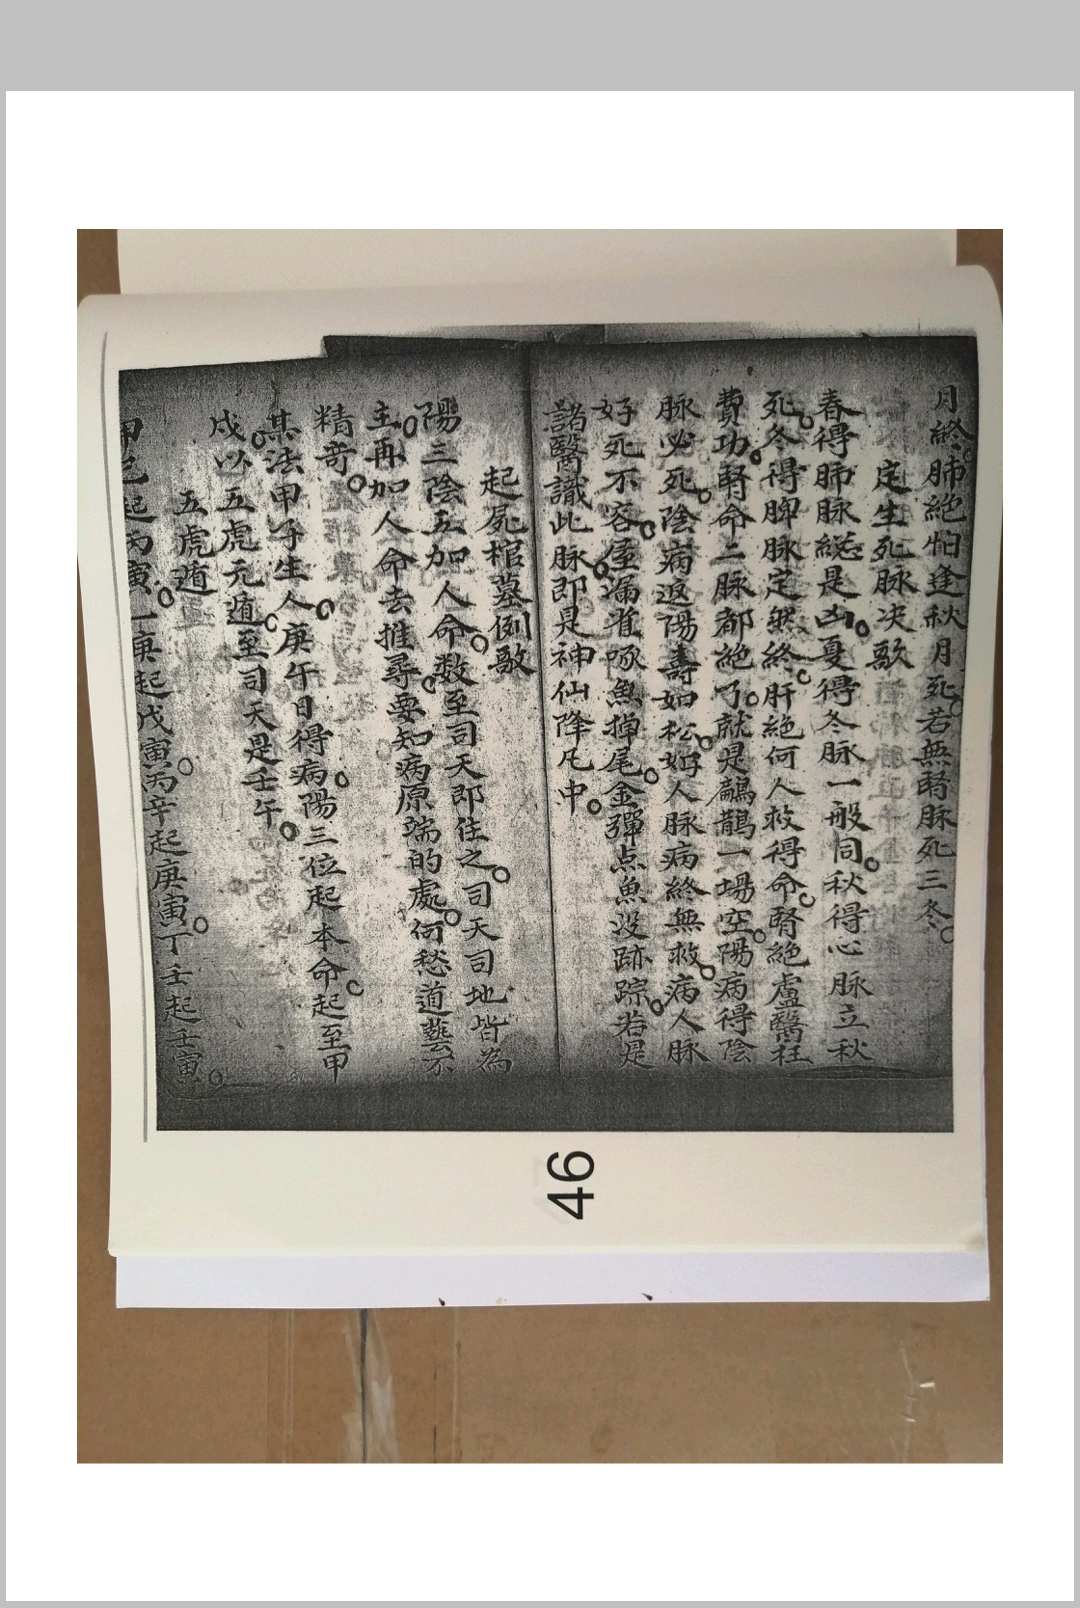 月終。肺絕怕逢秋月死。若無腎脉死三冬。
定生死脉决歌
春得肺脉總是凶。夏得冬脉一般同。秋得心脉立秋
死。冬得脾脉定然終。肝絕何人救得命。腎絕盧醫枉
費功。腎命二脉都絕了。就是鷊鵲一場空。陽病得陰
脉必死。陰病返陽壽如松。好人脉病終無救。病人脉
好死不容。屋漏雀啄魚掉尾。金彈点魚没跡踪。若是
諸醫識此脉。即是神仙降凡中。
起屍棺墓例歌
陽三陰五加人命。数至司天即住之。司天司地皆為
主。再加人命去推尋。要知病原端的處。何愁道藝不
精竒。
其法甲子生人。庚午日得病。陽三位起本命。起至甲
戌。以五虎元遁。至司天是壬午。
五虎遁
甲己起丙寅。乙庚起戊寅。丙辛起庚寅。丁壬起壬寅。
46